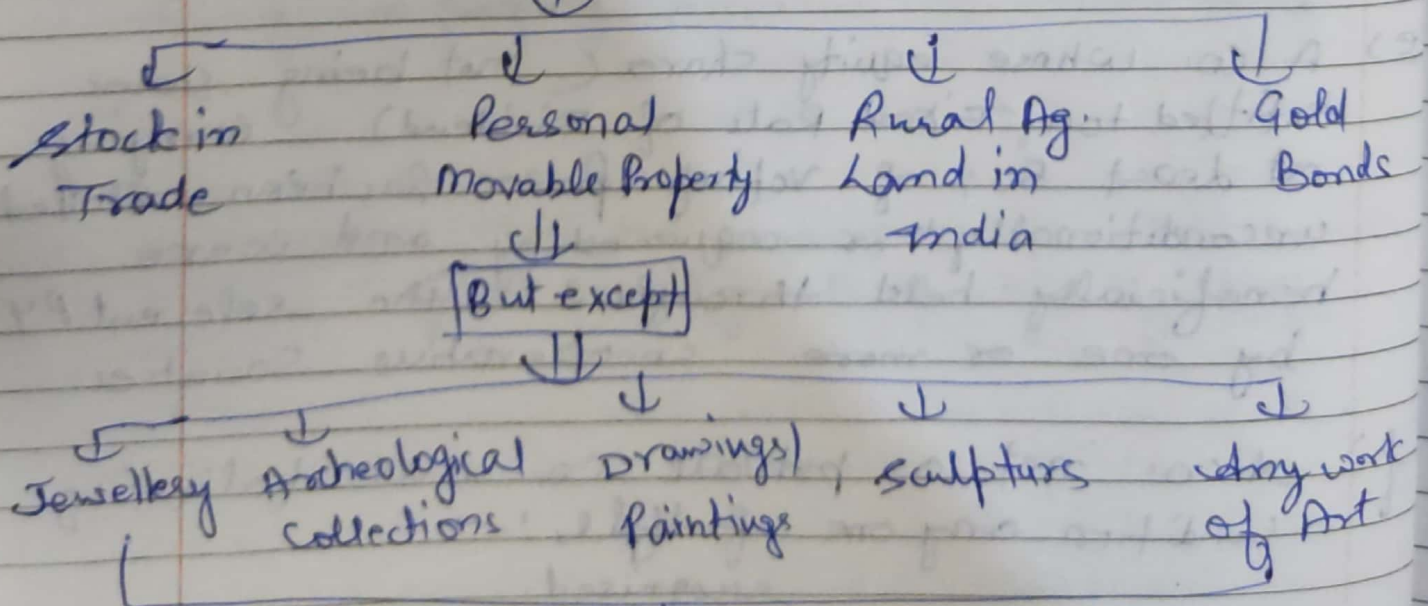 Stock in
Trade
Personal
Movable Property
Rural Ag.
Land in
India
Gold
Bonds
But except
Jewellery
Archeological
Collections
Drawings/
Paintings
Sculpturs
Any work
of Art